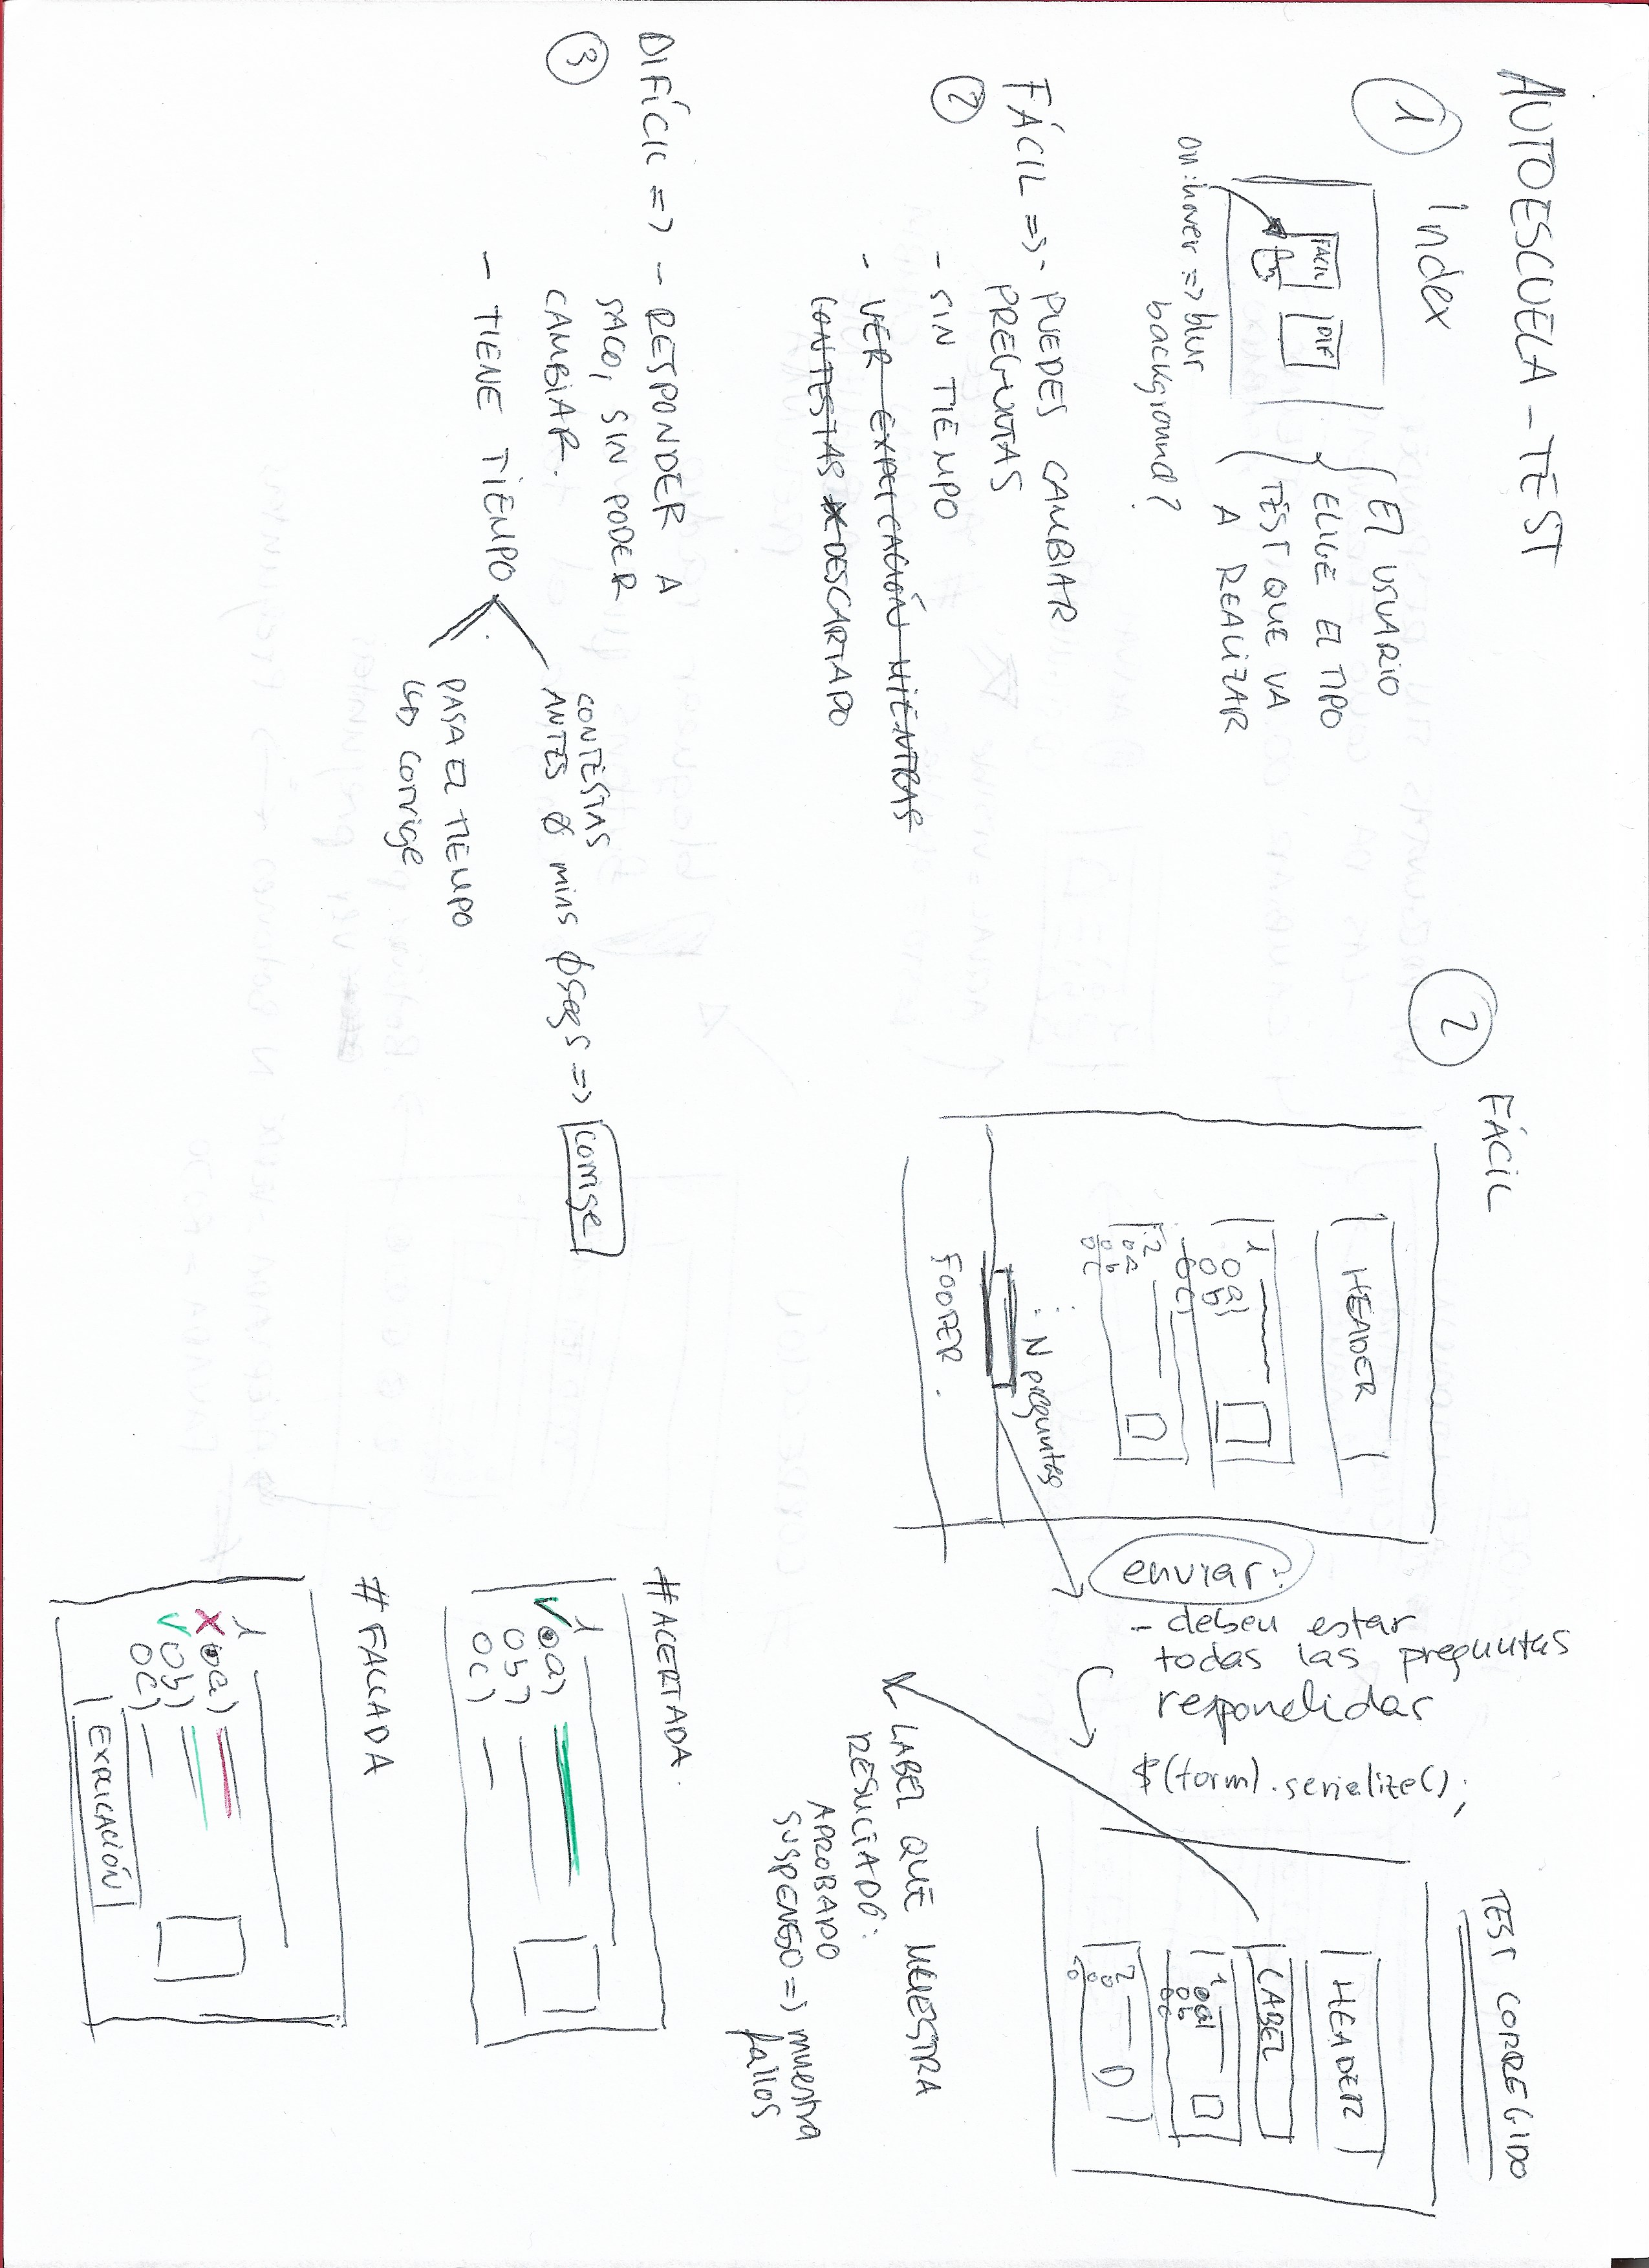 AUTOESCUELA - TEST
1 Index
FACIL DIF
El USUARIO
ELIGE EL TIPO
TEST QUE VA
A REALIZAR
on:hover => blur
background?
FÁCIL => - PUEDES CAMBIAR
PREGUNTAS
2
- SIN TIEMPO
- VER EXPLICACIÓN MIENTRAS
CONTESTAS DESCARTADO
DIFÍCIL => - RESPONDER A
SACO, SIN PODER
CAMBIAR.
3
- TIENE TIEMPO
CONTESTAS
ANTES 0 mins 0segs => corrige
PASA EL TIEMPO
↳ corrige
2 FÁCIL
HEADER
1
a)
b)
c)
2
a
b
c
N preguntas
FOOTER.
enviar:
- deben estar
todas las preguntas
respondidas
$(form).serialize();
TEST CORREGIDO
HEADER
LABEL
1
a)
b
c
2
LABEL QUE MUESTRA
RESULTADO:
APROBADO
SUSPENSO => muestra
fallos
# ACERTADA.
1
✓ a)
b)
c)
# FALLADA
1
X a)
✓ b)
c)
EXPLICACIÓN